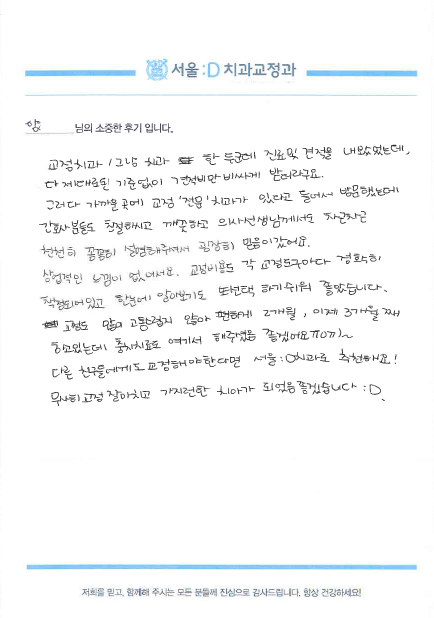 서울 :D 치과교정과
양 님의 소중한 후기 입니다.
교정치과 / 그냥 치과 한 두군데 진료 및 견적을 내보았었는데,
다 제대로된 기준없이 견적비만 비싸게 받더라구요.
그러다 가까운 곳에 교정 '전용' 치과가 있다고 들어서 방문했는데
간호사분들도 친절하시고 깨끗하고 의사선생님께서도 차근차근
천천히 꼼꼼히 설명해주셔서 굉장히 믿음이갔어요.
상업적인 느낌이 없어서요. 교정비용도 각 교정도구마다 정확히
책정되어있고 한눈에 알아보기도 또 선택 하기 쉬워 좋았습니다.
교정도 많이 고통스럽지 않아 편하게 2개월, 이제 3개월 째
하고있는데 충치치료도 여기서 해주셨음 좋겠어요ㅠOㅠ)~
다른 친구들에게도 교정해야한다면 서울:D치과로 추천해요!
무사히 교정 잘마치고 가지런한 치아가 되었음 좋겠습니다 :D
저희를 믿고, 함께해 주시는 모든 분들께 진심으로 감사드립니다. 항상 건강하세요!